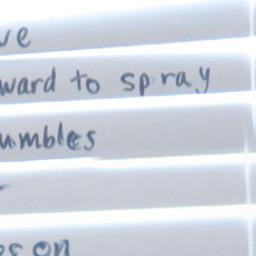 ve
ward to spray
umbles
es on